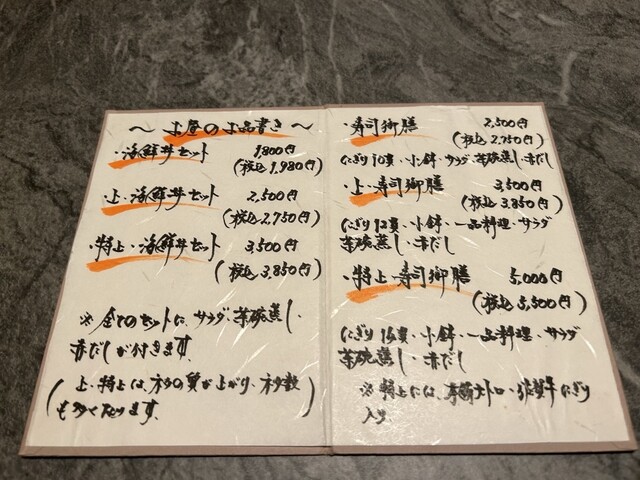 〜 お昼のお品書き 〜
・海鮮丼セット 1,800円
(税込 1,980円)
・上・海鮮丼セット 2,500円
(税込 2,750円)
・特上・海鮮丼セット 3,500円
(税込 3,850円)
※ 全てのセットに、サラダ、茶碗蒸し・
赤だしが付きます。
(上・特上は、ネタの質が上がり、ネタ数
も多くなります。)
・寿司御膳 2,500円
(税込 2,750円)
にぎり10貫・小鉢・サラダ・茶碗蒸し・赤だし
・上・寿司御膳 3,500円
(税込 3,850円)
にぎり12貫・小鉢・一品料理・サラダ
茶碗蒸し・赤だし
・特上・寿司御膳 5,000円
(税込 5,500円)
にぎり16貫・小鉢・一品料理・サラダ
茶碗蒸し・赤だし
※ 特上には、本鮪大トロ・佐賀牛にぎり
入り